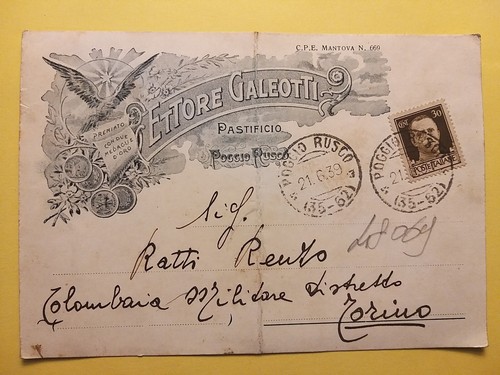 C.P.E. MANTOVA N. 669
ETTORE GALEOTTI
PREMIATO
CON DUE
MEDAGLIE
D'ORO
PASTIFICIO
POGGIO RUSCO
POGGIO RUSCO
21.6.39
(35-62)
POGGIO
21.
(35-62)
30
POSTE ITALIANE
Sig.
Ratti Renzo
Colombaia Militare Distretto
Torino